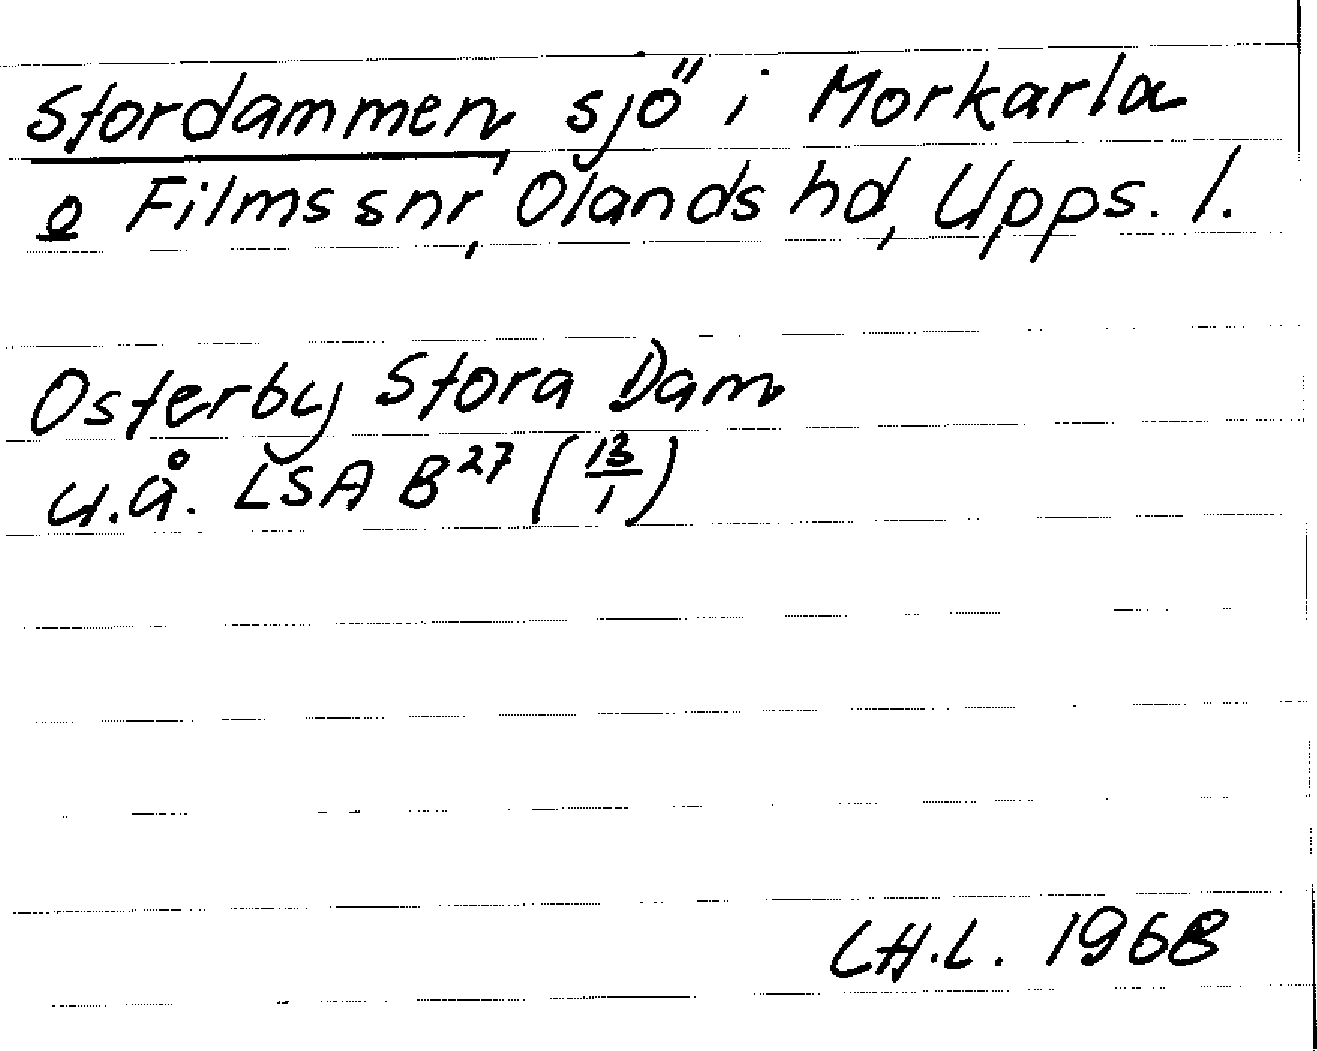 Stordammen, sjö i Morkarla
o Films snr, Olands hd, Upps. l.
Osterby Stora Dam
u.å. LSA B27 (13/1)
C.H.L. 1968